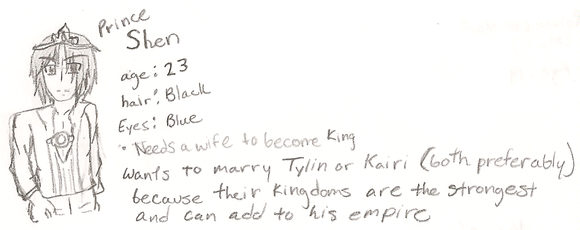 Prince
Shen
age: 23
hair: Black
Eyes: Blue
• Needs a wife to become King
wants to marry Tylin or Kairi (both preferably)
because their Kingdoms are the strongest
and can add to his empire